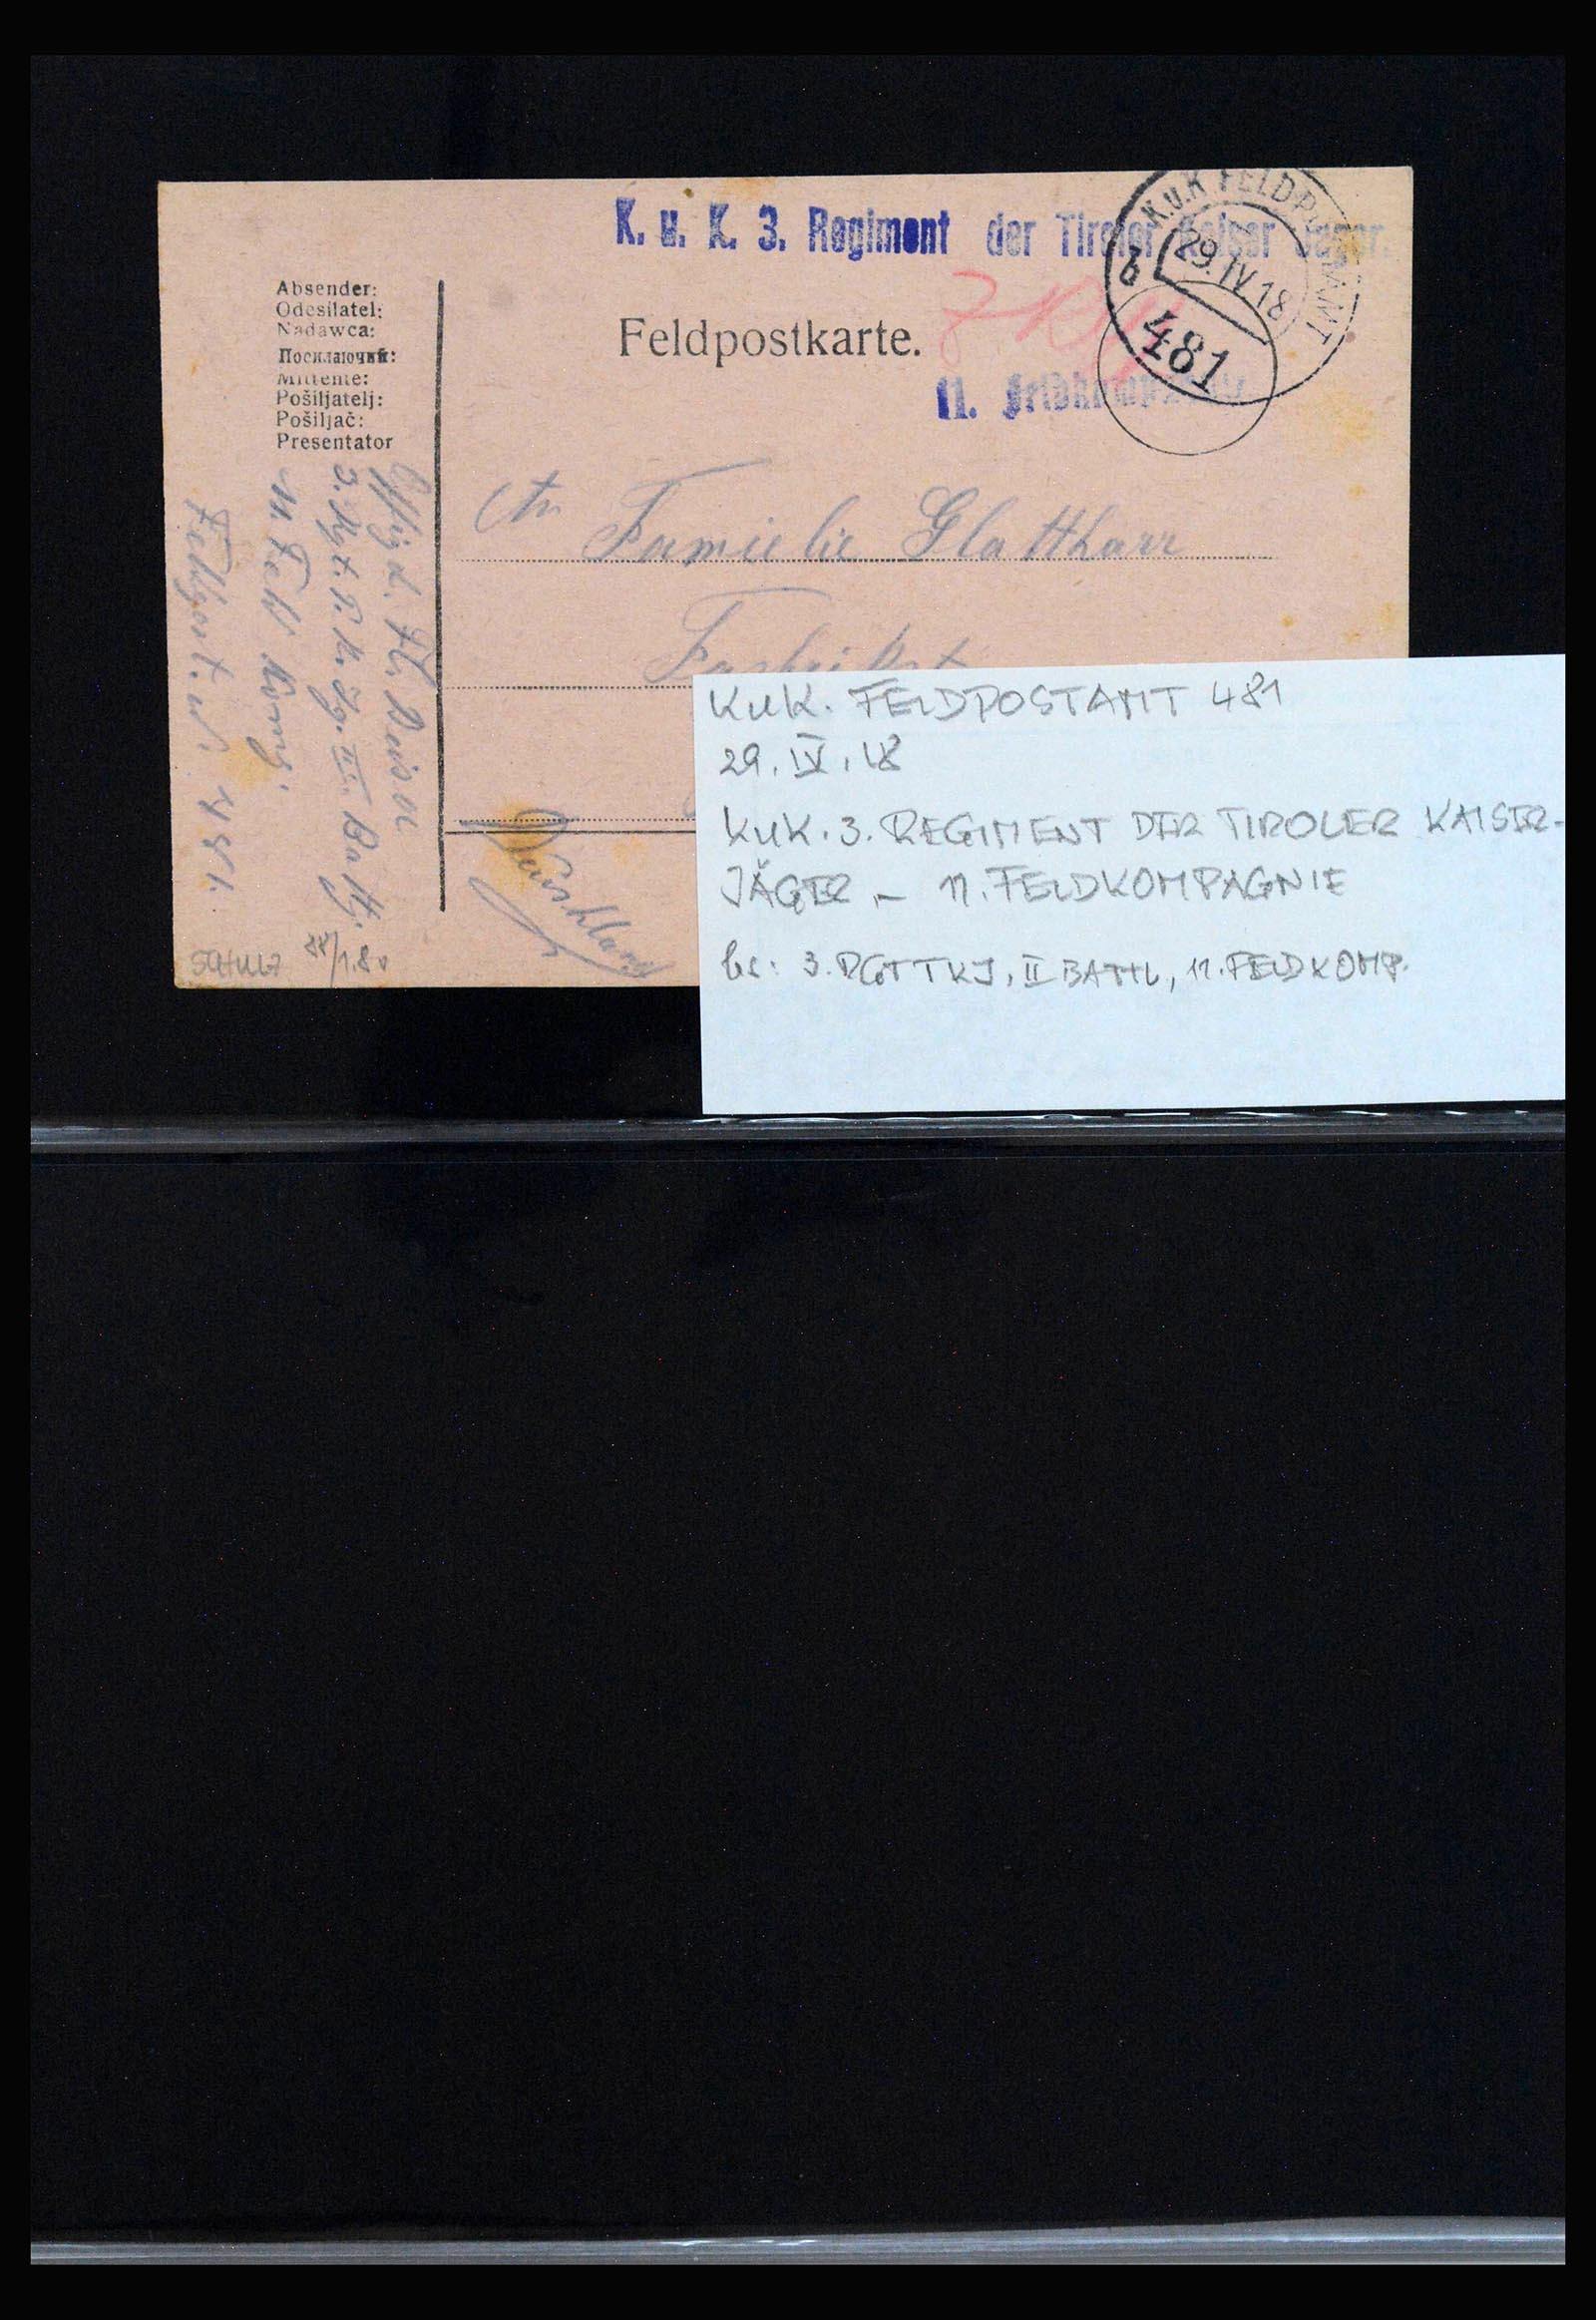 K. u. K. 3. Regiment der Tiroler Kaiser Jäger.
K.u.K. FELDPOSTAMT
29.IV.18
b
481
Feldpostkarte.
11. Feldkompagnie
Absender:
Odesílatel:
Nadawca:
Посилаючий:
Mittente:
Pošiljatelj:
Pošiljač:
Presentator
3. Rgt. T. K. Jg. III. Batt.
11. Feld Komp.
Feldpost. N. 481.
An Familie Glatthaar
SCHULZ
KUK. FELDPOSTAMT 481
29. IV. 18
KUK. 3. REGIMENT DER TIROLER KAISER-
JÄGER, – 11. FELDKOMPAGNIE
bs: 3. RGT TKJ, II BATTL, 11. FELDKOMP.